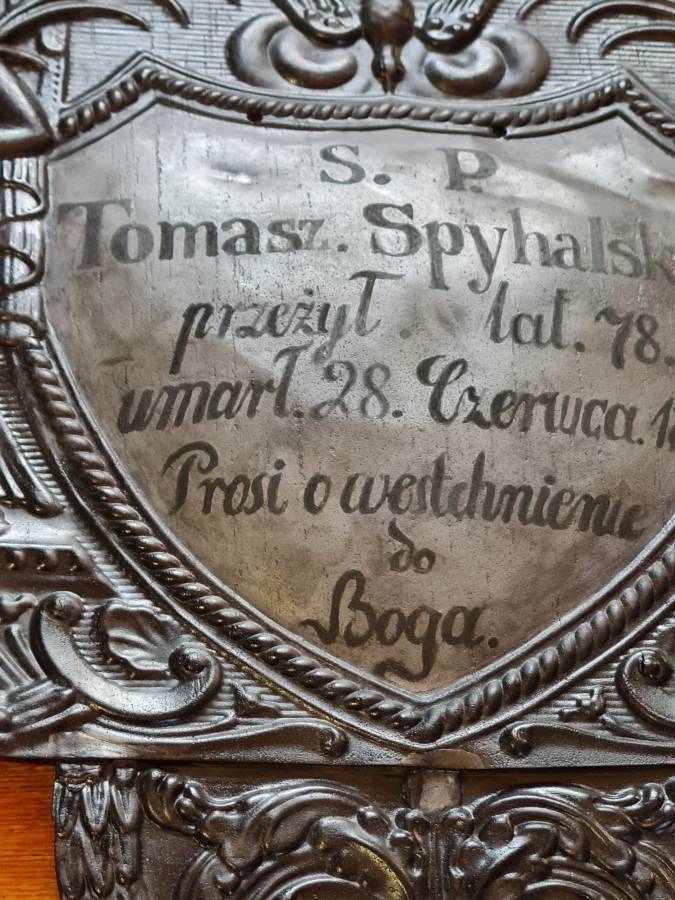 S. P.
Tomasz. Spyhalsk
przeżył. lat. 78.
umarł. 28. Czerwca. 1
Prosi o westchnienie
do
Boga.